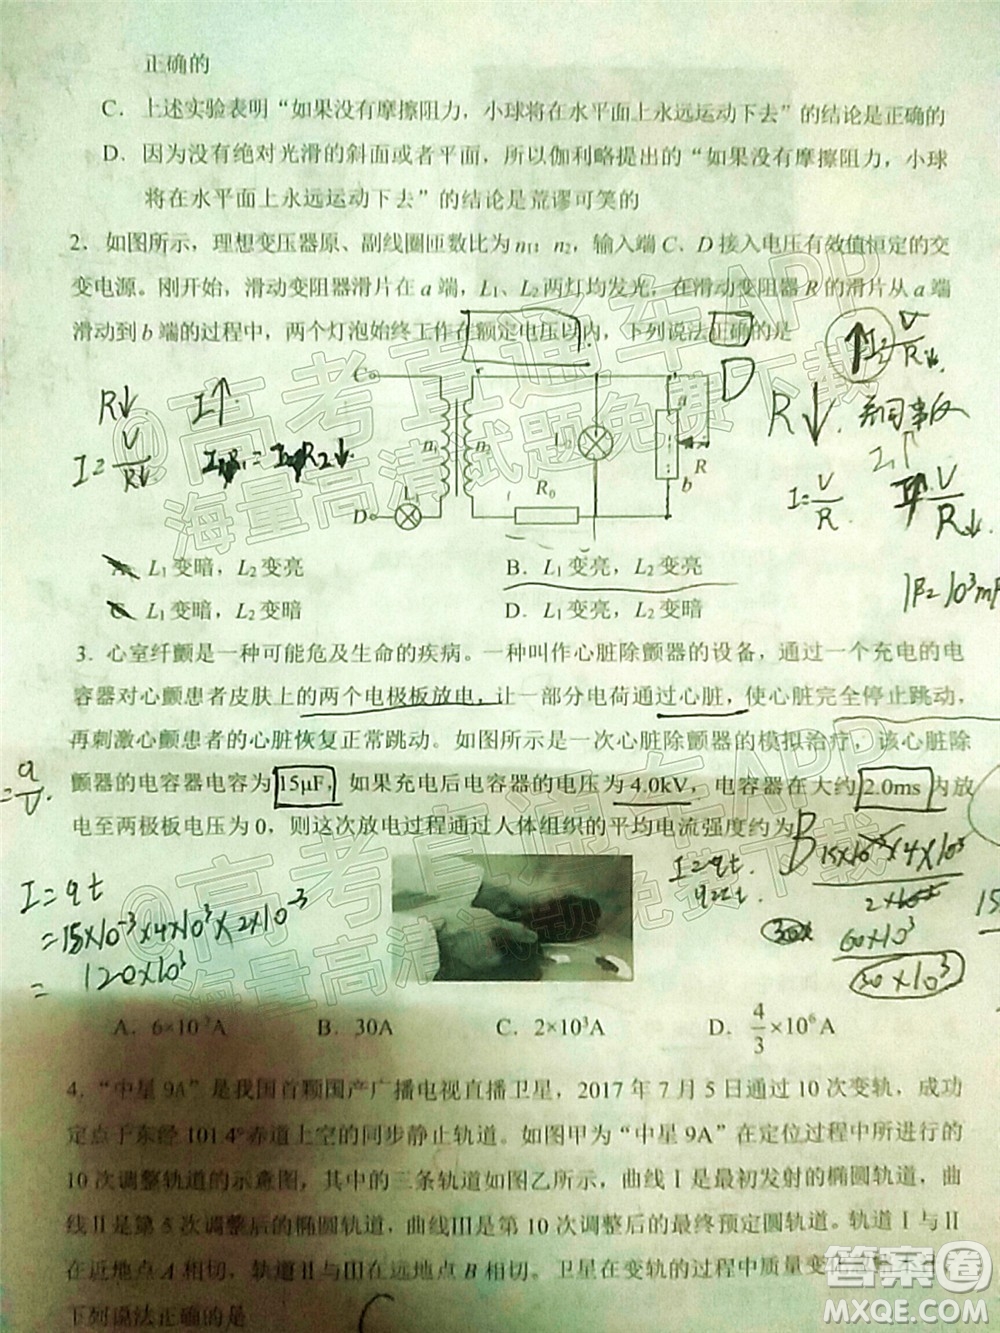 正确的
C．上述实验表明“如果没有摩擦阻力，小球将在水平面上永远运动下去”的结论是正确的
D．因为没有绝对光滑的斜面或者平面，所以伽利略提出的“如果没有摩擦阻力，小球
将在水平面上永远运动下去”的结论是荒谬可笑的
2．如图所示，理想变压器原、副线圈匝数比为n₁：n₂，输入端C、D接入电压有效值恒定的交
变电源。刚开始，滑动变阻器滑片在a端，L₁、L₂两灯均发光，在滑动变阻器R的滑片从a端
滑动到b端的过程中，两个灯泡始终工作在额定电压以内，下列说法正确的是
D
R↓ I↑
I=V/R↓
C a
n₁ n₂ L₂ R
b
D L₁ R₀
R↓
I=V/R
A．L₁变暗，L₂变亮 B．L₁变亮，L₂变亮
C．L₁变暗，L₂变暗 D．L₁变亮，L₂变暗
3．心室纤颤是一种可能危及生命的疾病。一种叫作心脏除颤器的设备，通过一个充电的电
容器对心颤患者皮肤上的两个电极板放电，让一部分电荷通过心脏，使心脏完全停止跳动，
再刺激心颤患者的心脏恢复正常跳动。如图所示是一次心脏除颤器的模拟治疗，该心脏除
颤器的电容器电容为15μF，如果充电后电容器的电压为4.0kV，电容器在大约2.0ms内放
电至两极板电压为0，则这次放电过程通过人体组织的平均电流强度约为
B
I=qt
=15×10⁻³×4×10³×2×10⁻³
=120×10³
I=qt
60×10³
30×10³
A．6×10⁻²A B．30A C．2×10³A D．4/3×10⁶A
4．“中星9A”是我国首颗国产广播电视直播卫星，2017年7月5日通过10次变轨，成功
定点于东经101.4°赤道上空的同步静止轨道。如图甲为“中星9A”在定位过程中所进行的
10次调整轨道的示意图，其中的三条轨道如图乙所示，曲线Ⅰ是最初发射的椭圆轨道，曲
线Ⅱ是第5次调整后的椭圆轨道，曲线Ⅲ是第10次调整后的最终预定圆轨道。轨道Ⅰ与Ⅱ
在近地点A相切，轨道Ⅱ与Ⅲ在远地点B相切。卫星在变轨的过程中质量变化
下列说法正确的是
@高考直通车APP
海量高清试题免费下载
@高考直通车APP
海量高清试题免费下载
答案圈
MXQE.COM